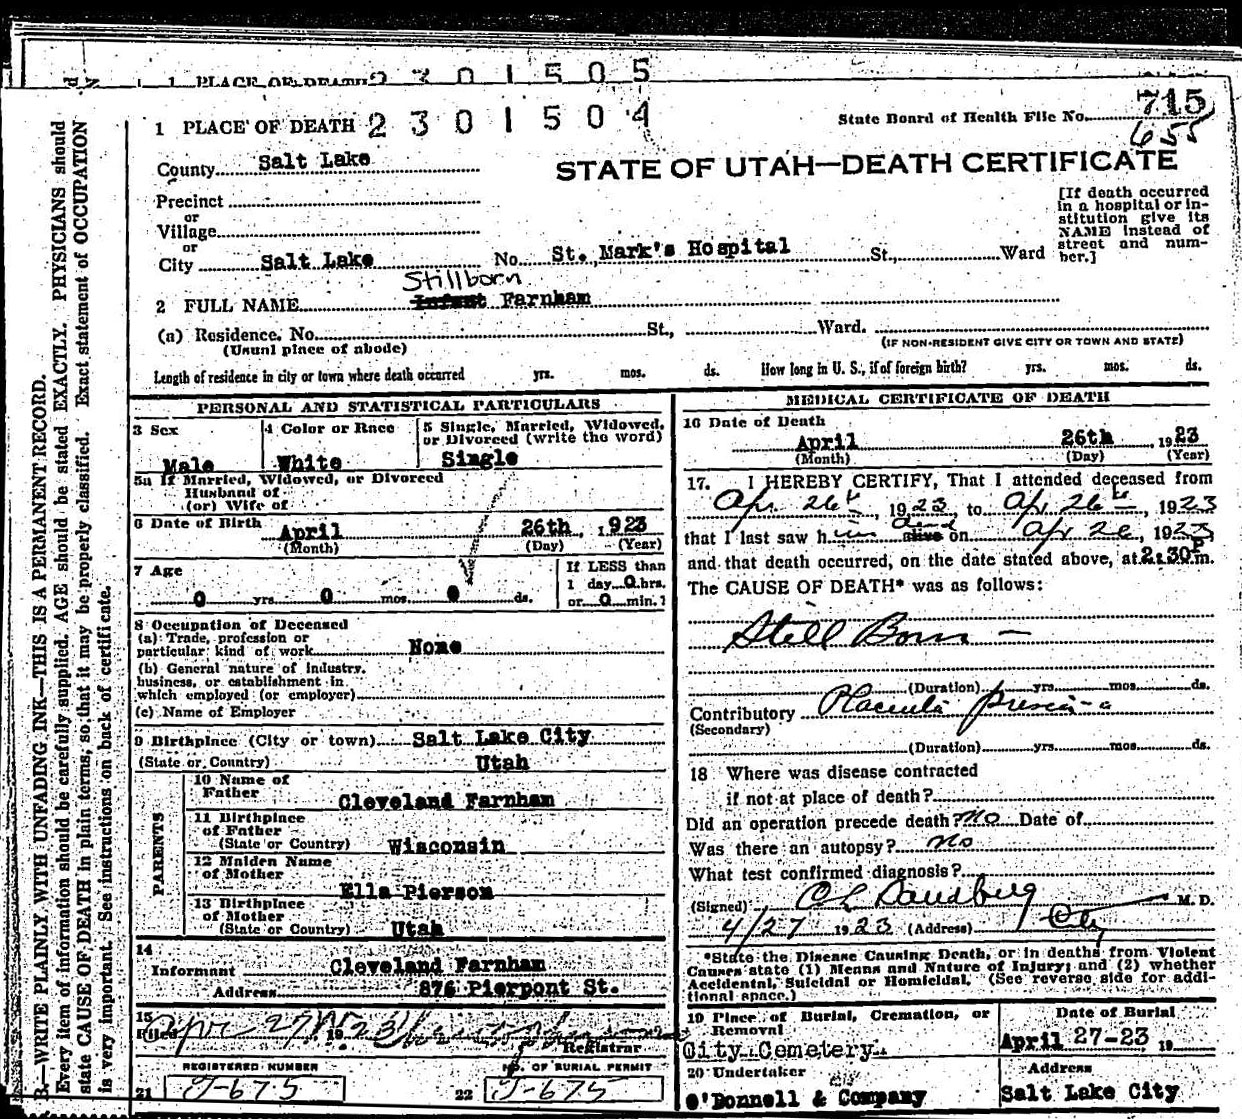 1 PLACE OF DEATH 2 3 0 1 5 0 5
1 PLACE OF DEATH 2 3 0 1 5 0 4
State Board of Health File No. 715
655
STATE OF UTAH—DEATH CERTIFICATE
County Salt Lake
Precinct
or
Village
or
City Salt Lake No. St. Mark's Hospital St., Ward
[If death occurred
in a hospital or in-
stitution give its
NAME instead of
street and num-
ber.]
Stillborn
2 FULL NAME Infant Farnham
(a) Residence. No. St., Ward.
(Usual place of abode) (IF NON-RESIDENT GIVE CITY OR TOWN AND STATE)
Length of residence in city or town where death occurred yrs. mos. ds. How long in U. S., if of foreign birth? yrs. mos. ds.
PERSONAL AND STATISTICAL PARTICULARS
3 Sex
Male
4 Color or Race
White
5 Single, Married, Widowed,
or Divorced (write the word)
Single
5a If Married, Widowed, or Divorced
Husband of
(or) Wife of
6 Date of Birth April 26th, 1923
(Month) (Day) (Year)
7 Age
0 yrs. 0 mos. 0 ds.
If LESS than
1 day 0 hrs.
or 0 min.?
8 Occupation of Deceased
(a) Trade, profession or
particular kind of work None
(b) General nature of industry,
business, or establishment in
which employed (or employer)
(c) Name of Employer
9 Birthplace (City or town) Salt Lake City
(State or Country) Utah
PARENTS
10 Name of
Father Cleveland Farnham
11 Birthplace
of Father
(State or Country) Wisconsin
12 Maiden Name
of Mother
Ella Pierson
13 Birthplace
of Mother
(State or Country) Utah
14
Informant Cleveland Farnham
Address 876 Pierpont St.
15
Filed Apr 27 1923
Registrar
REGISTERED NUMBER
21 J-675
NO. OF BURIAL PERMIT
22 J-675
MEDICAL CERTIFICATE OF DEATH
16 Date of Death
April 26th 1923
(Month) (Day) (Year)
17. I HEREBY CERTIFY, That I attended deceased from
Apr. 26th, 1923, to Apr 26th, 1923
that I last saw him dead alive on Apr 26, 1923
and that death occurred, on the date stated above, at 2:30 P m.
The CAUSE OF DEATH* was as follows:
Still Born —
(Duration) yrs. mos. ds.
Contributory Placenta previa
(Secondary)
(Duration) yrs. mos. ds.
18 Where was disease contracted
if not at place of death?
Did an operation precede death? No Date of
Was there an autopsy? No
What test confirmed diagnosis?
(Signed) C L Sandberg M. D.
4/27 1923 (Address) City
*State the Disease Causing Death, or in deaths from Violent
Causes state (1) Means and Nature of Injury; and (2) whether
Accidental, Suicidal or Homicidal. (See reverse side for addi-
tional space.)
19 Place of Burial, Cremation, or
Removal
City Cemetery
Date of Burial
April 27-23 19
20 Undertaker
City
O'Donnell & Company
Address
Salt Lake City
B.—WRITE PLAINLY WITH UNFADING INK—THIS IS A PERMANENT RECORD.
Every item of information should be carefully supplied. AGE should be stated EXACTLY. PHYSICIANS should
state CAUSE OF DEATH in plain terms, so that it may be properly classified. Exact statement of OCCUPATION
is very important. See instructions on back of certificate.